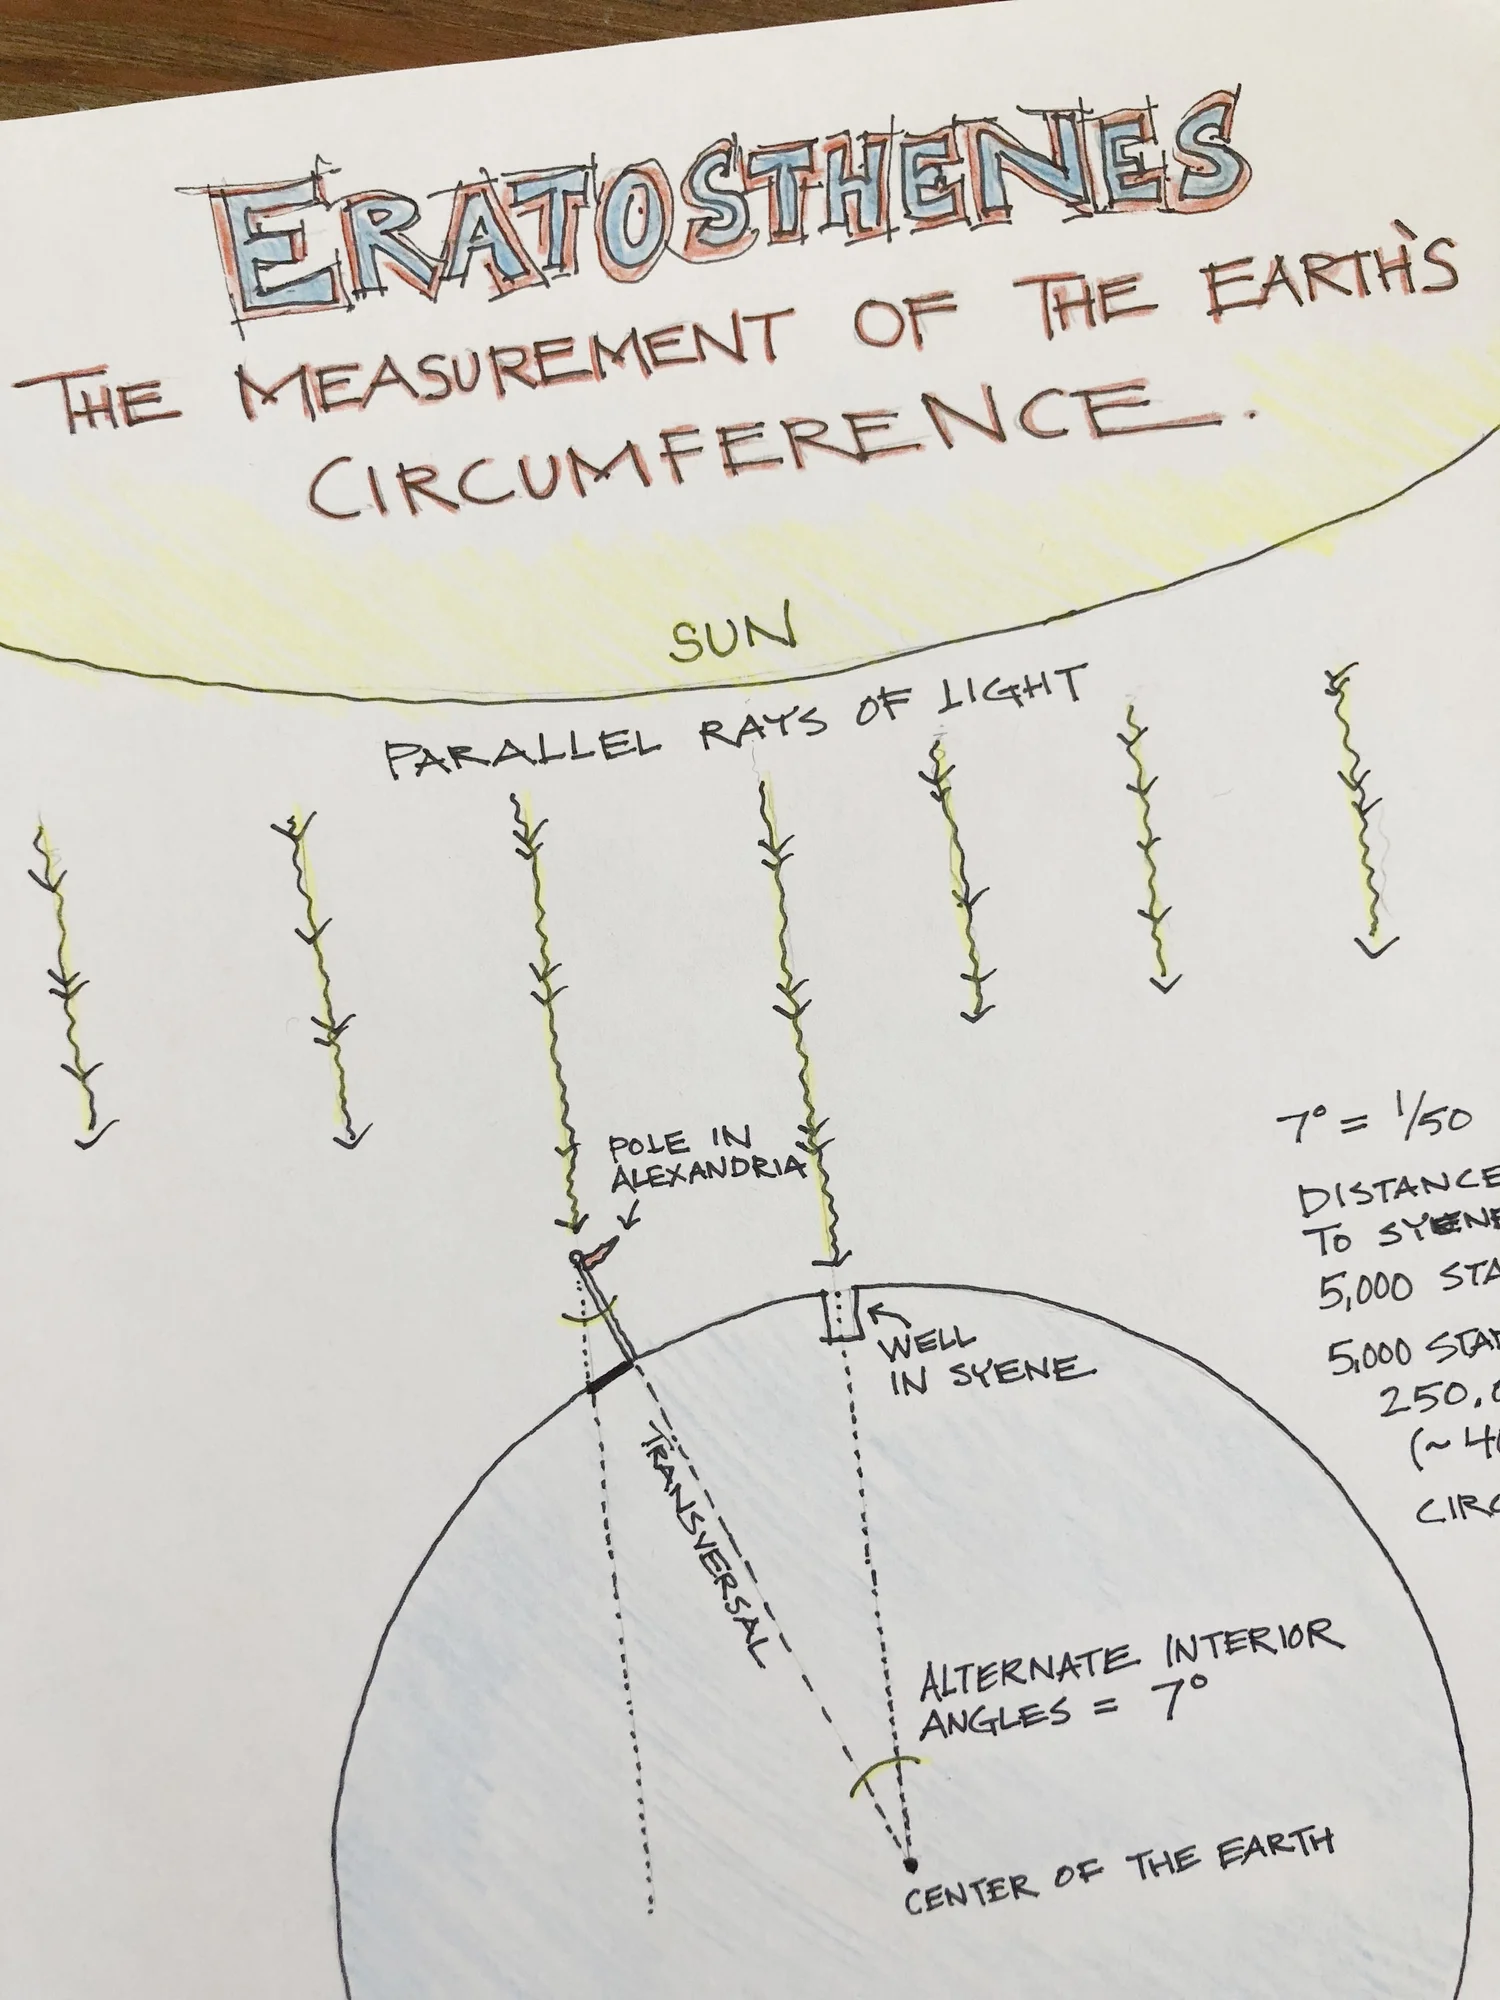 ERATOSTHENES
THE MEASUREMENT OF THE EARTH'S
CIRCUMFERENCE.
SUN
PARALLEL RAYS OF LIGHT
POLE IN
ALEXANDRIA
WELL
IN SYENE
TRANSVERSAL
ALTERNATE INTERIOR
ANGLES = 7°
CENTER OF THE EARTH
7° = 1/50
DISTANCE
TO SYENE
5,000 STA
5,000 STA
250,0
(~ 40
CIRC